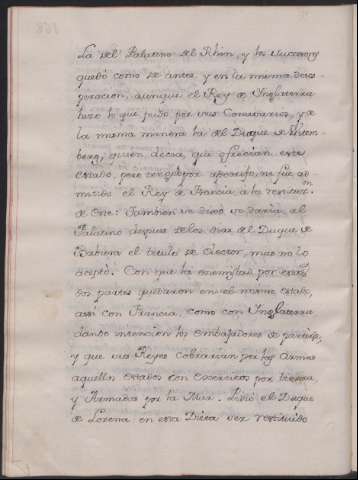 La del Palatino del Rhin, y los sucesores
quedó como de antes, y en la misma deses-
peracion, aunque el Rey de Inglaterra
hizo lo que pudo por sus Comisarios, y de
la misma manera la del Duque de
berg, quien decia, que ofrecian este
estado, pero no fue ad-
mitido el Rey de Francia a la restituc.n
de este: Tambien se dixo se daria al
Palatino despues de los dias del Duque de
Babiera el titulo de Elector, mas no lo
aceptó. Con que la enemistad por estas
en partes quedaron en el mismo estado,
assi con Francia, como con Inglaterra
dando intencion los embaxadores de partirse,
y que sus Reyes cobrarian por las Armas
aquellos estados con Exercitos por tierra,
y Armadas por la Mar. Pidió el Duque
de Lorena en esta Dieta ser restituido